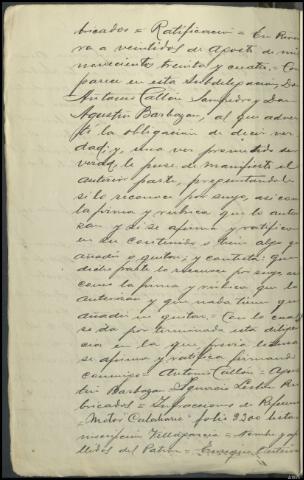 bricados = Ratificacion = En Rivei
ra a veintidos de Agosto de mil
novecientos treinta y cuatro = Com
parece en esta Subdelegacion, Don
Antonio Callón Sampedro y Don
Agustin Barbazan, al que adver
ti la obligacion de decir ver
dad; y, una vez prometido ser
veraz, le puse de manifiesto el
anterior parte, preguntandole
si lo reconoce por suyo, asi como
la firma y rubrica que lo autori
zan y si se afirma y ratifica
en su contenido o tiene algo que
añadir o quitar, y contesta: que
dicho parte lo reconoce por suyo asi
como la firma y rubrica que lo
autorizan y que nada tiene que
añadir ni quitar. = Con lo cual
se da por terminada esta diligen
cia en la que, previa lectura
se afirma y ratifica firmando
conmigo = Antonio Callón = Agus
tin Barbazan = Ignacio Lestón Ru
bricados = Infracciones de Reforma
= Motor "Catahario" folio 2300 lista
inscripcion Villagarcia = Nombre y ape
llidos del Patron = Enrique